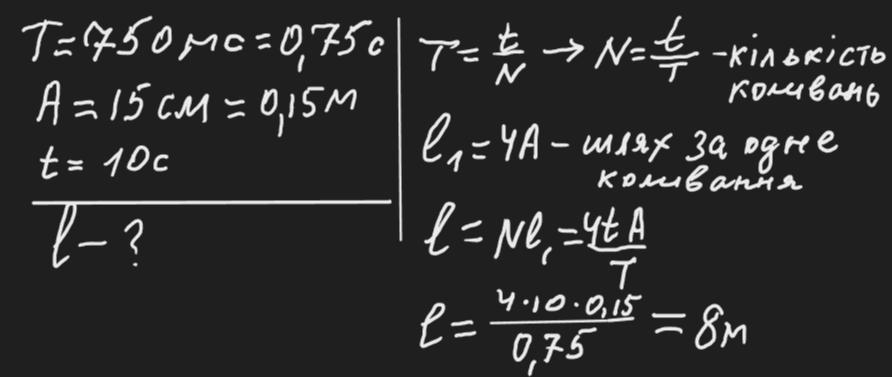 T=750мс=0,75с
A=15см=0,15м
t=10с
l-?
T=t/N → N=t/T -кількість
коливань
l₁=4A- шлях за одне
коливання
l=Nl₁=4tA/T
l=4·10·0,15/0,75=8м